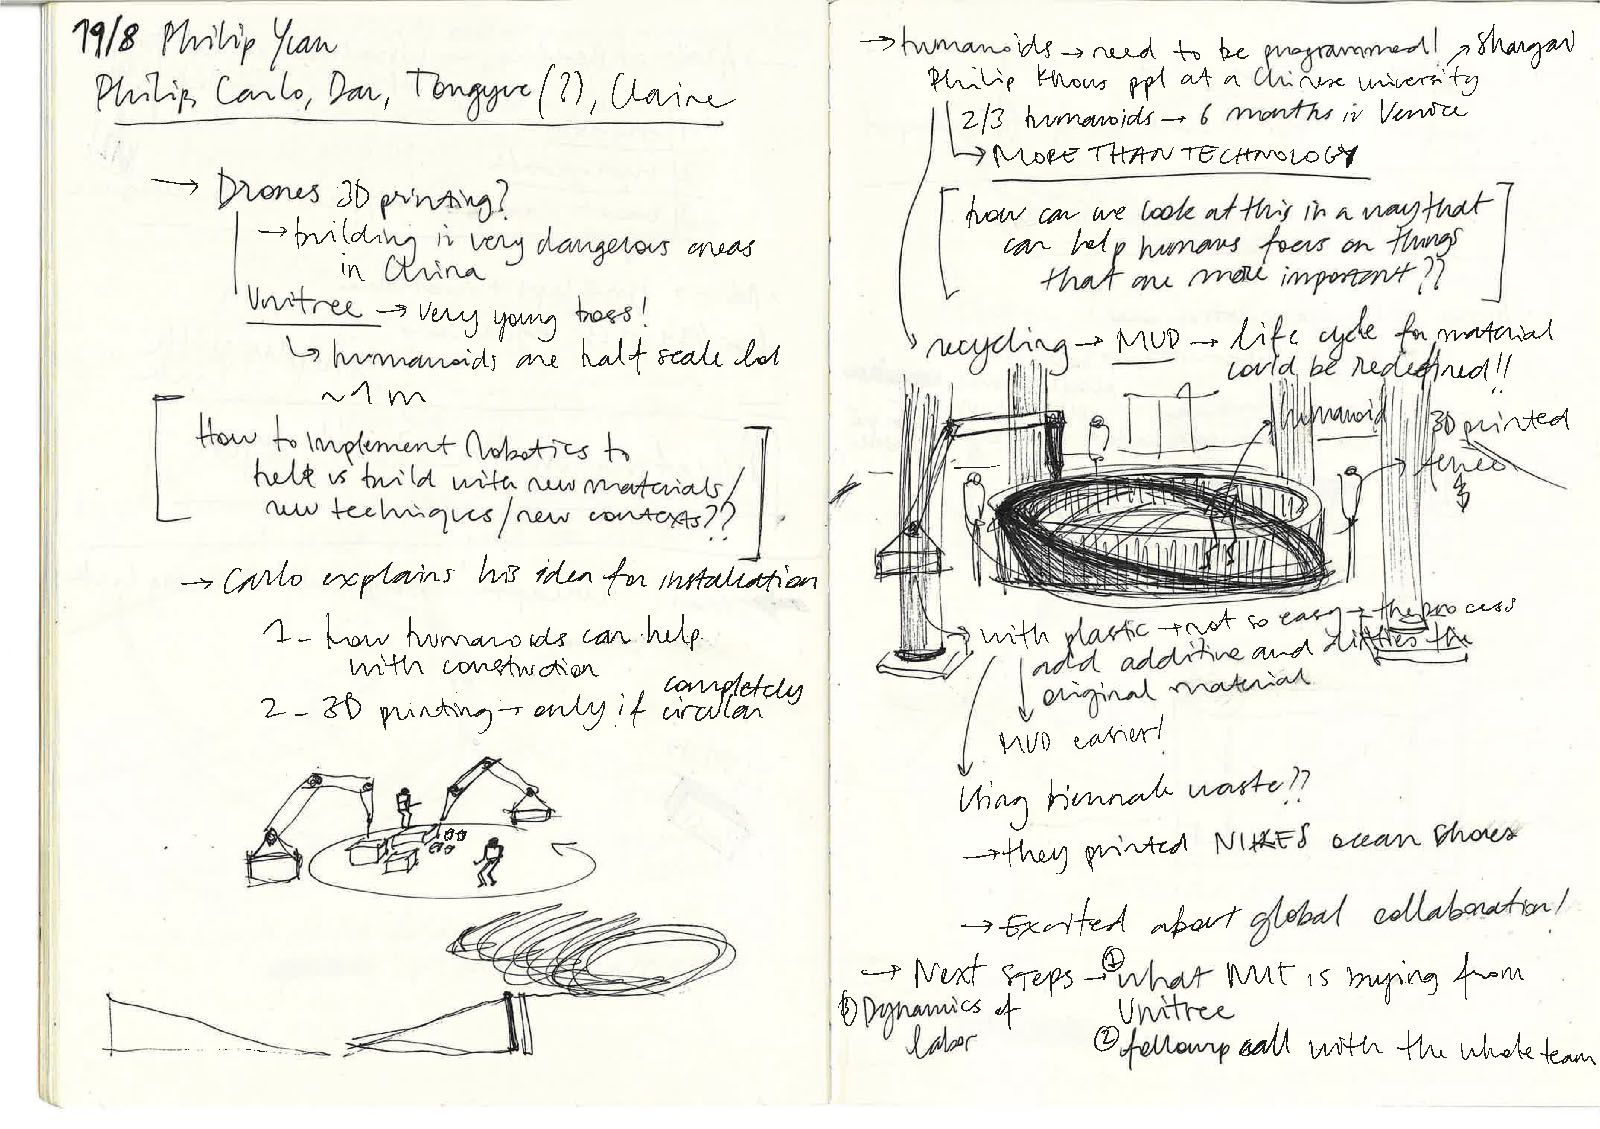 19/8 Philip Yuan
Philip, Carlo, Dan, Tongyue (?), Claire
→ Drones 3D printing?
→ building in very dangerous areas
in China
Unitree → very young boss!
↳ humanoids are half scale lol
~1 m
[How to implement robotics to
help us build with new materials/
new techniques/new contexts??]
→ Carlo explains his idea for installation
1 - how humanoids can help
with construction
2 - 3D printing → only if completely
circular
→ humanoids → need to be programmed! ↗ Shangai
Philip knows ppl at a Chinese university
2/3 humanoids → 6 months in Venice
↳ MORE THAN TECHNOLOGY
[how can we look at this in a way that
can help humans focus on things
that are more important??]
recycling → MUD → life cycle for material
could be redefined!!
humanoid
3D printed
fence
with plastic → not so easy → the process
add additive and the
original material
MUD easier!
Using biennale waste??
→ they printed NIKES ocean shoes
→ Excited about global collaboration!
→ Next steps → ① what MIT is buying from
Unitree
② followup call with the whole team
③ Dynamics of
labor